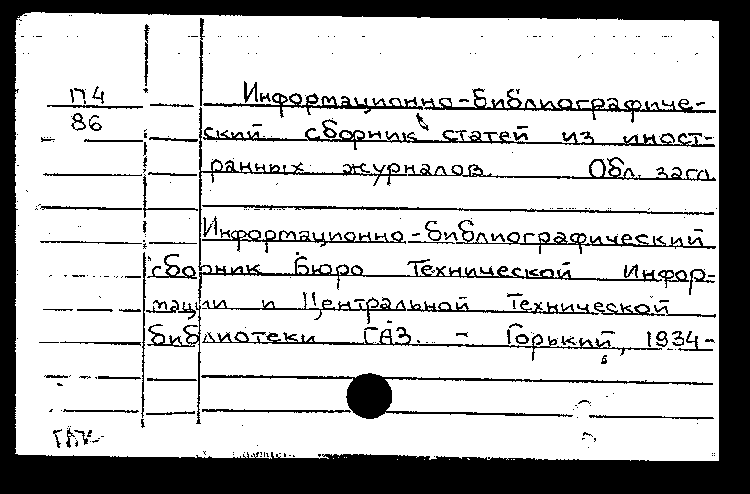 П4
86
Информационно-библиографиче-
ский сборник статей из иност-
ранных журналов. Обл. загл.
Информационно-библиографический
сборник Бюро Технической Инфор-
мации и Центральной Технической
библиотеки ГАЗ. - Горький, 1934-